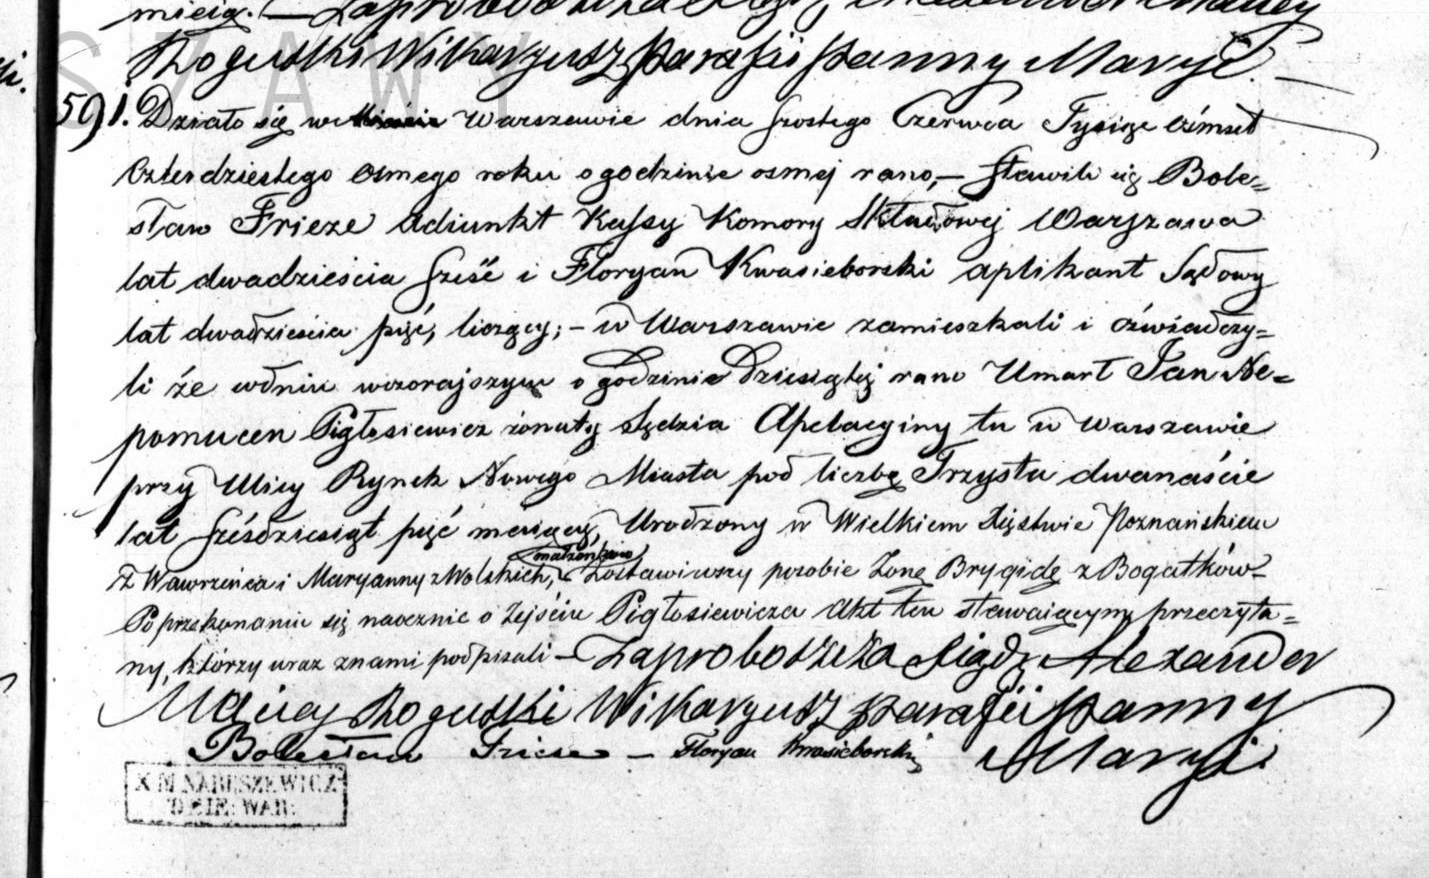 Rogulski Wikaryusz Parafii Panny Maryi.
SZAWY
591. Działo się we Warszawie dnia szostego Czerwca Tysiąc ośmset
Czterdziestego osmego roku o godzinie osmej rano,— Stawili się Bole=
sław Frieze Adiunkt Kassy Komory Składowej Warszawa
lat dwadzieścia sześć i Floryan Kwasieborski aplikant Sądowy
lat dwadzieścia pięć, liczący;— w Warszawie zamieszkali i oświadczy=
li że w dniu wczorajszym o godzinie Dziesiątej rano Umarł Jan Ne=
pomucen Pigłosiewicz żonaty Sędzia Apelacyiny tu w Warszawie
przy Ulicy Rynek Nowego Miasta pod liczbą Trzysta dwanaście
lat sześćdziesiąt pięć mający, Urodzony w Wielkiem Xięstwie Poznańskiem
z Wawrzeńca i Maryanny z Wolskich, małżonków Zostawiwszy po sobie Żonę Brygidę z Bogatków—
Po przekonaniu się naocznie o Zejściu Pigłosiewicza Akt ten stawaiącym przeczyta=
ny, którzy wraz z nami podpisali — Za proboszcza Xiądz Alexander
Maciej Rogulski Wikaryusz Parafii Panny
Bolesław Frieze — Floryan Kwasieborski Maryi.
X M NARUSZEWICZ
DZIE: WAR: